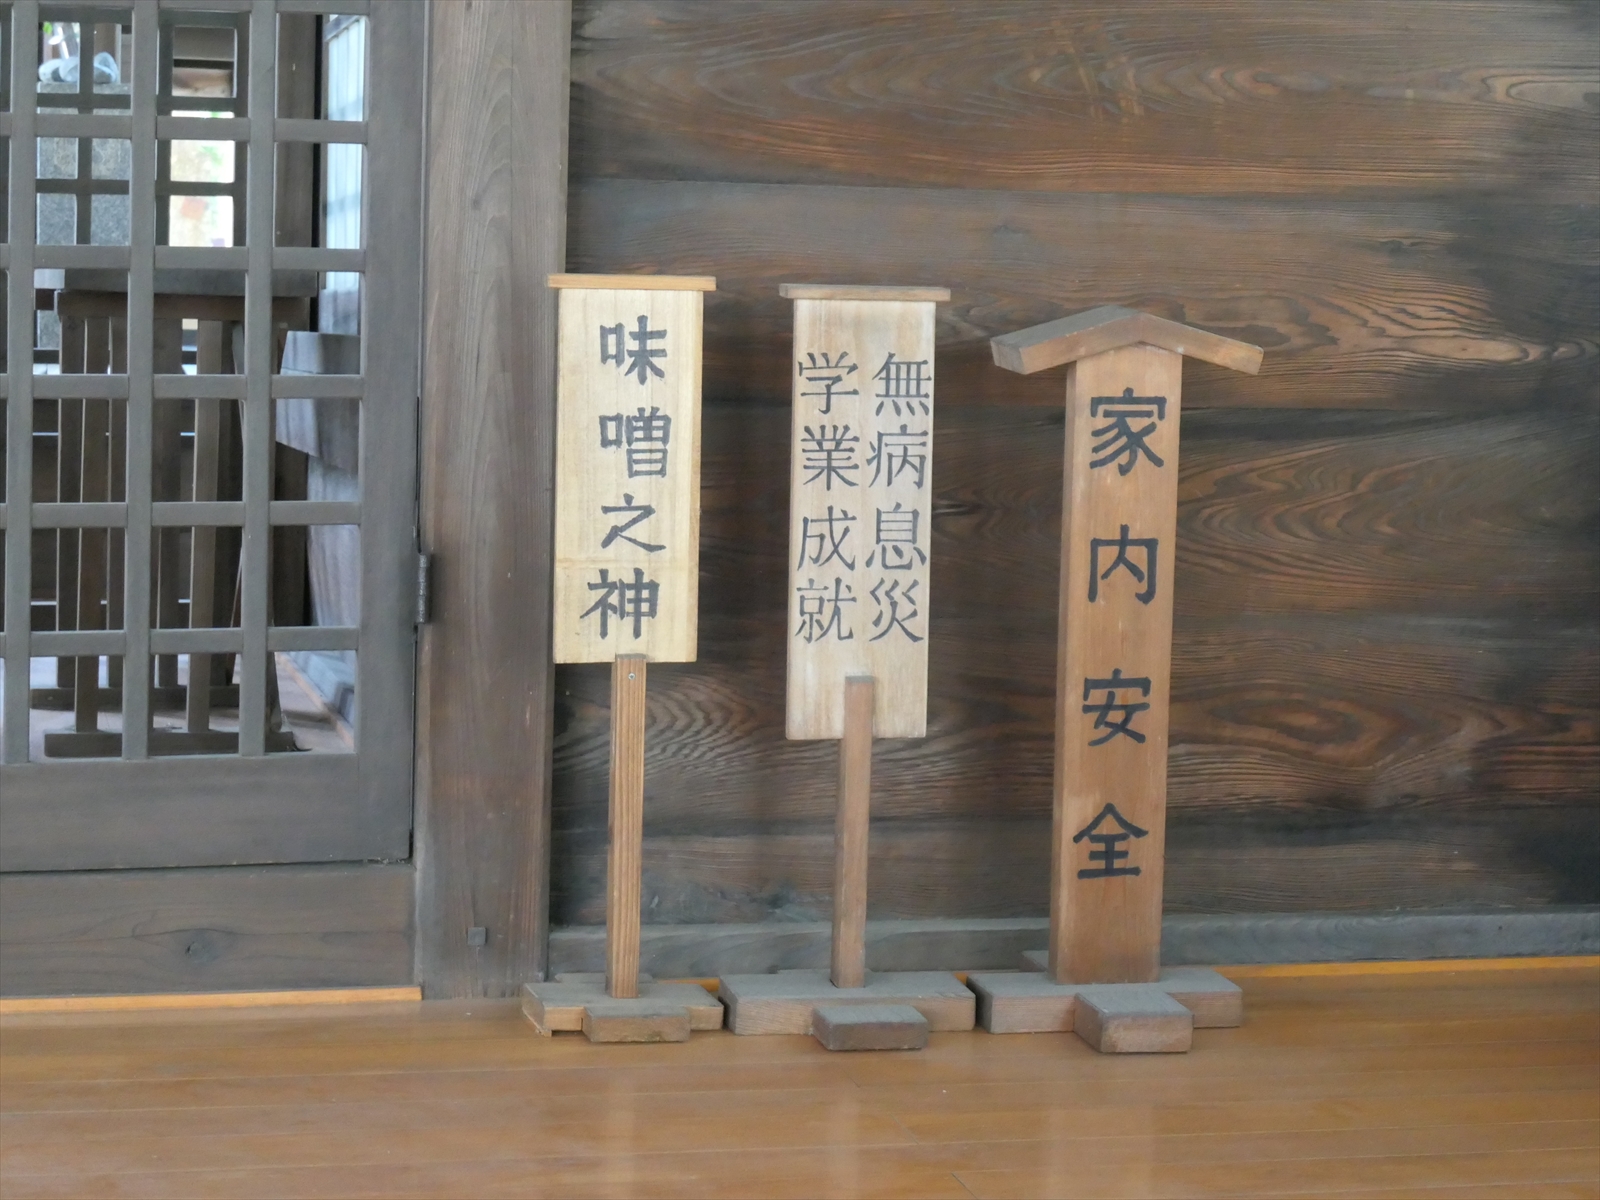 味噌之神
無病息災
学業成就
家内安全